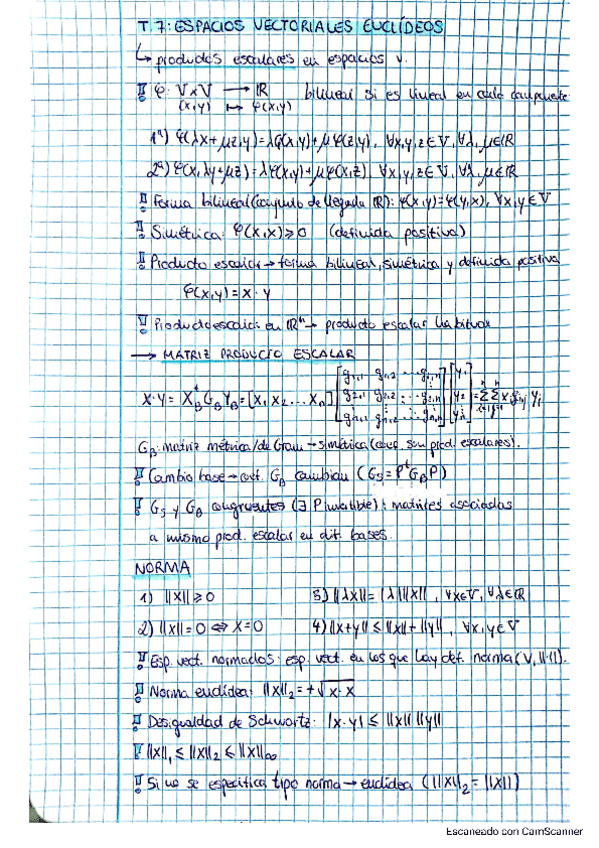 T.7: ESPACIOS VECTORIALES EUCLÍDEOS
↳ productos escalares en espacios v.
φ: V×V → ℝ bilineal si es lineal en cada componente
(x,y) ↦ φ(x,y)
1º) φ(λx+μz,y)=λφ(x,y)+μφ(z,y), ∀x,y,z∈V, ∀λ,μ∈ℝ
2º) φ(x,λy+μz)=λφ(x,y)+μφ(x,z), ∀x,y,z∈V, ∀λ,μ∈ℝ
Forma bilineal (conjunto de llegada ℝ): φ(x,y)=φ(y,x), ∀x,y∈V
Simétrica: φ(x,x)≥0 (definida positiva)
Producto escalar→forma bilineal, simétrica y definida positiva
φ(x,y)=x·y
Producto escalar en ℝⁿ→ producto escalar habitual
→ MATRIZ PRODUCTO ESCALAR
X·Y= X_B^t G_B Y_B=[X₁ X₂ ... Xₙ] [g₁,₁ g₁,₂ ... g₁,ₙ; g₂,₁ g₂,₂ ... g₂,ₙ; gₙ,₁ gₙ,₂ ... gₙ,ₙ]
G_B: matriz métrica/de Gram→simétrica (coef. son prod. escalares).
Cambio base→coef. G_B cambian (G_S=P^t G_B P)
G_S y G_B congruentes (∃ P invertible): matrices asociadas
a mismo prod. escalar en dif. bases.
NORMA
1) ||x||≥0 3) ||λx||=|λ| ||x||, ∀x∈V, ∀λ∈ℝ
2) ||x||=0 ⇔ x=0 4) ||x+y|| ≤ ||x||+||y||, ∀x,y∈V
Esp. vect. normados: esp. vect. en los que hay def. norma (V, ||·||).
Norma euclídea: ||x||₂=+√x·x
Desigualdad de Schwartz: |x·y| ≤ ||x|| ||y||
||x||₁ ≤ ||x||₂ ≤ ||x||∞
Si no se especifica tipo norma→euclídea (||x||₂=||x||)
Escaneado con CamScanner